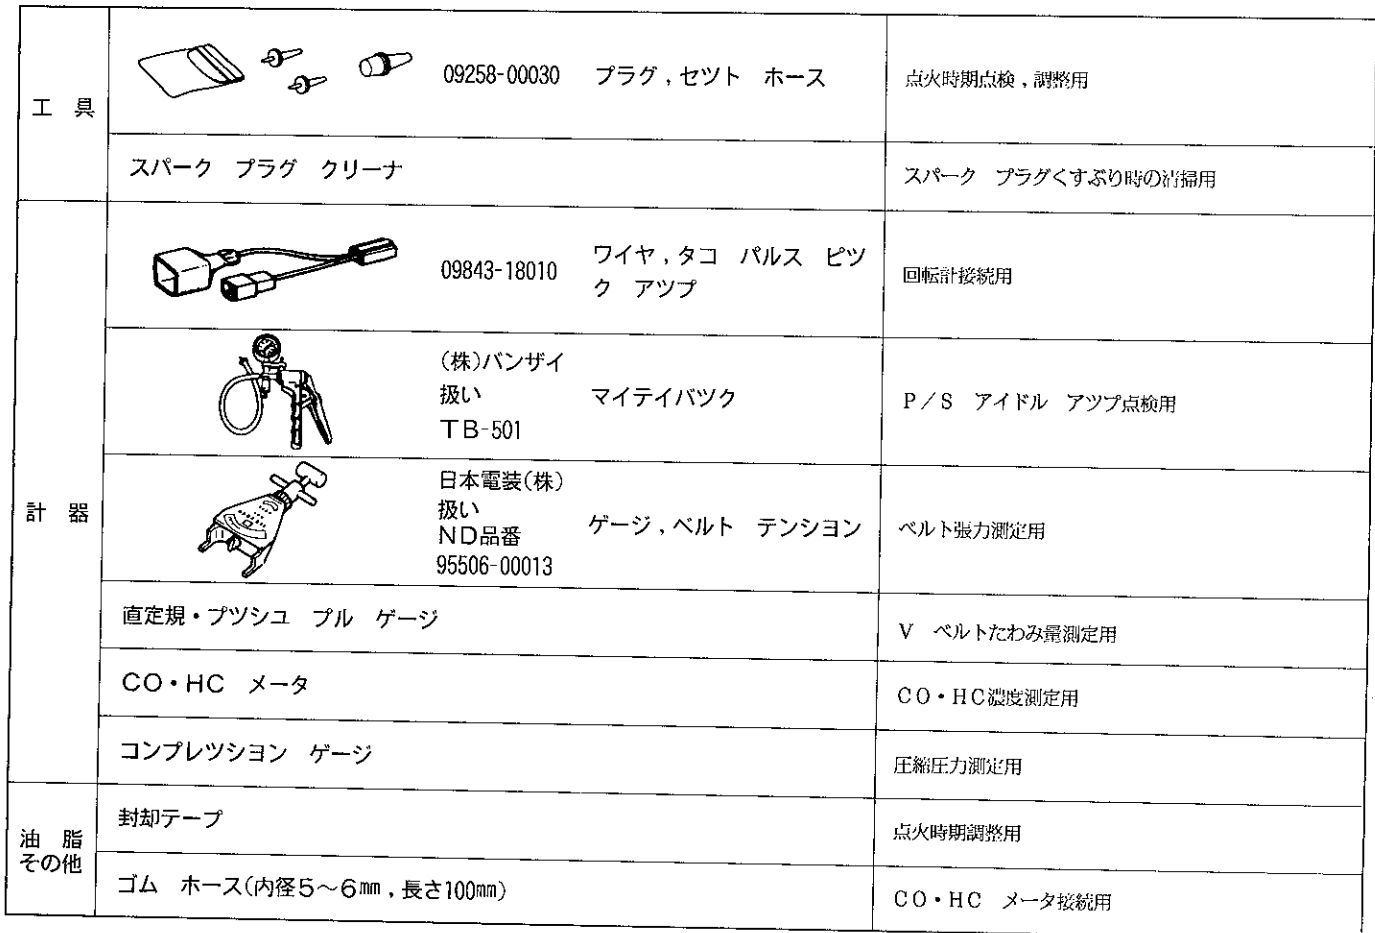 工 具
09258-00030 プラグ，セツト ホース 点火時期点検，調整用
スパーク プラグ クリーナ スパーク プラグくすぶり時の清掃用
計 器
09843-18010 ワイヤ，タコ パルス ピツ
ク アツプ
回転計接続用
(株)バンザイ
扱い
TB-501
マイテイバツク
P／S アイドル アツプ点検用
日本電装(株)
扱い
ND品番
95506-00013
ゲージ，ベルト テンシヨン
ベルト張力測定用
直定規・プツシユ プル ゲージ V ベルトたわみ量測定用
CO・HC メータ CO・HC濃度測定用
コンプレツシヨン ゲージ 圧縮圧力測定用
油 脂
その他
封却テープ 点火時期調整用
ゴム ホース(内径5～6㎜，長さ100㎜) CO・HC メータ接続用